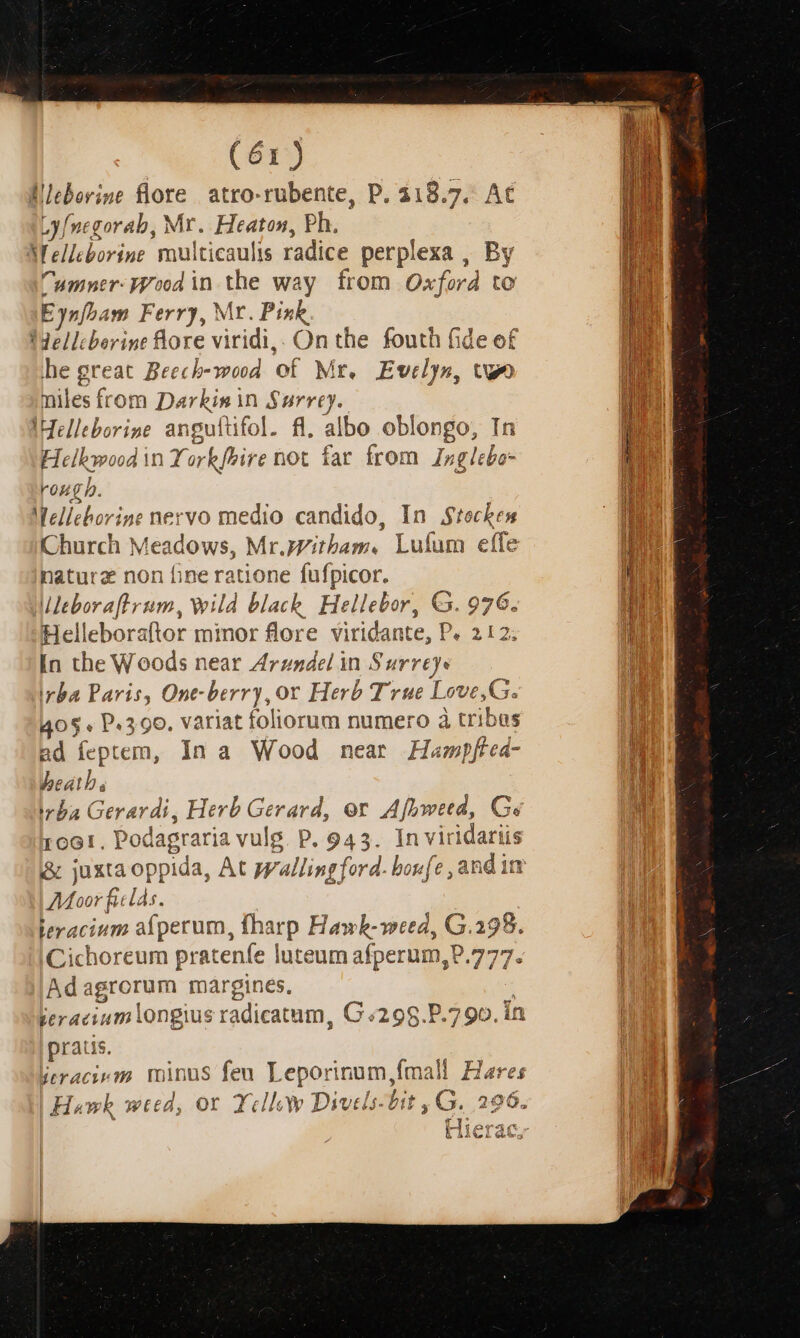 (61)
lleborine flore atro-rubente, P. 218.7. At
Lyſnegorah, Mr. Heaton, Ph.
Helleborine multicaulis radice perplexa, By
Cumner-Wood in the way from Oxford to
Eynſham Ferry, Mr. Pink.
Helleborine flore viridi, On the ſouth ſide of
the great Beech-wood of Mr. Evelyn, two
miles from Darkin in Surrey.
Helleborine anguſtifol. fl. albo oblongo, In
Helkwood in Yorkſhire not far from Ingleboꞏ
rough.
Helleborine nervo medio candido, In Stocken
Church Meadows, Mr. Witham. Luſum eſſe
naturæ non ſine ratione ſuſpicor.
lleboraſtrum, wild black Hellebor, G. 976.
Helleboraſtor minor flore viridante, P. 212.
In the Woods near Arundel in Surrey.
rba Paris, One-berry, or Herb True Love, G.
405. P. 390. variat foliorum numero à tribus
ad ſeptem, In a Wood near Hampſted-
heath.
rba Gerardi, Herb Gerard, or Aſhweed, G.
1001. Podagraria vulg. P. 943. In viridariis
& juxta oppida, At Wallingford-houſe, and in
Moor fields.
ieracium aſperum, ſharp Hawk-weed, G. 298.
Cichoreum pratenſe luteum aſperum, P. 777.
Ad agrorum margines.
ieracium longius radicatum, G. 298. P. 790. in
pratis.
ieracium minus ſeu Leporinum, ſmall Hares
Hawk weed, or Yellow Divels-bit, G. 296.
Hierac.